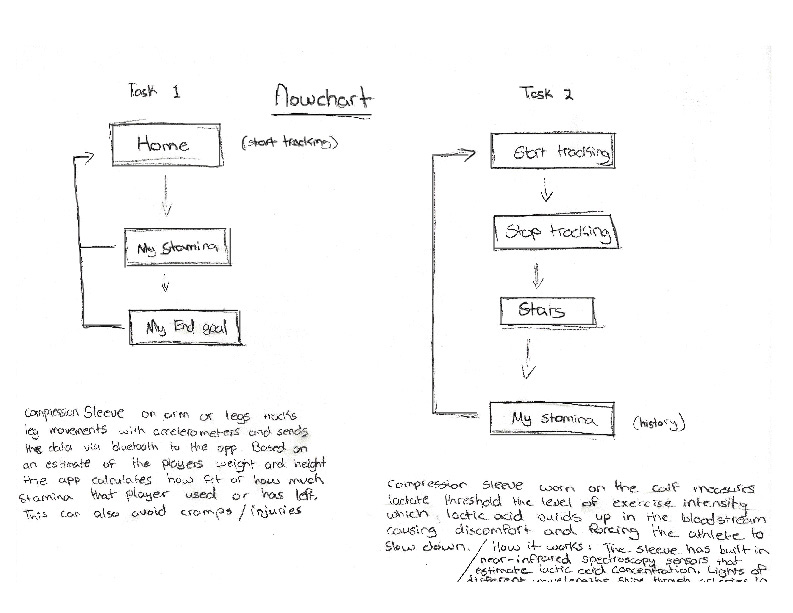 Task 1
Flowchart
Task 2
Home
(start tracking)
My Stamina
My End goal
Start tracking
Stop tracking
Stats
My Stamina
(history)
Compression Sleeve on arm or legs tracks
leg movements with accelerometers and sends
the data via bluetooth to the app. Based on
an estimate of the players weight and height
the app calculates how fit or how much
Stamina that player used or has left.
This can also avoid cramps / injuries
Compression Sleeve worn on the calf measures
lactate threshold the level of exercise intensity
which lactic acid builds up in the bloodstream
causing discomfort and forcing the athlete to
Slow down. / How it works: The sleeve has built in
near-infrared spectroscopy sensors that
estimate lactic acid concentration. Lights of
different wavelengths shine through